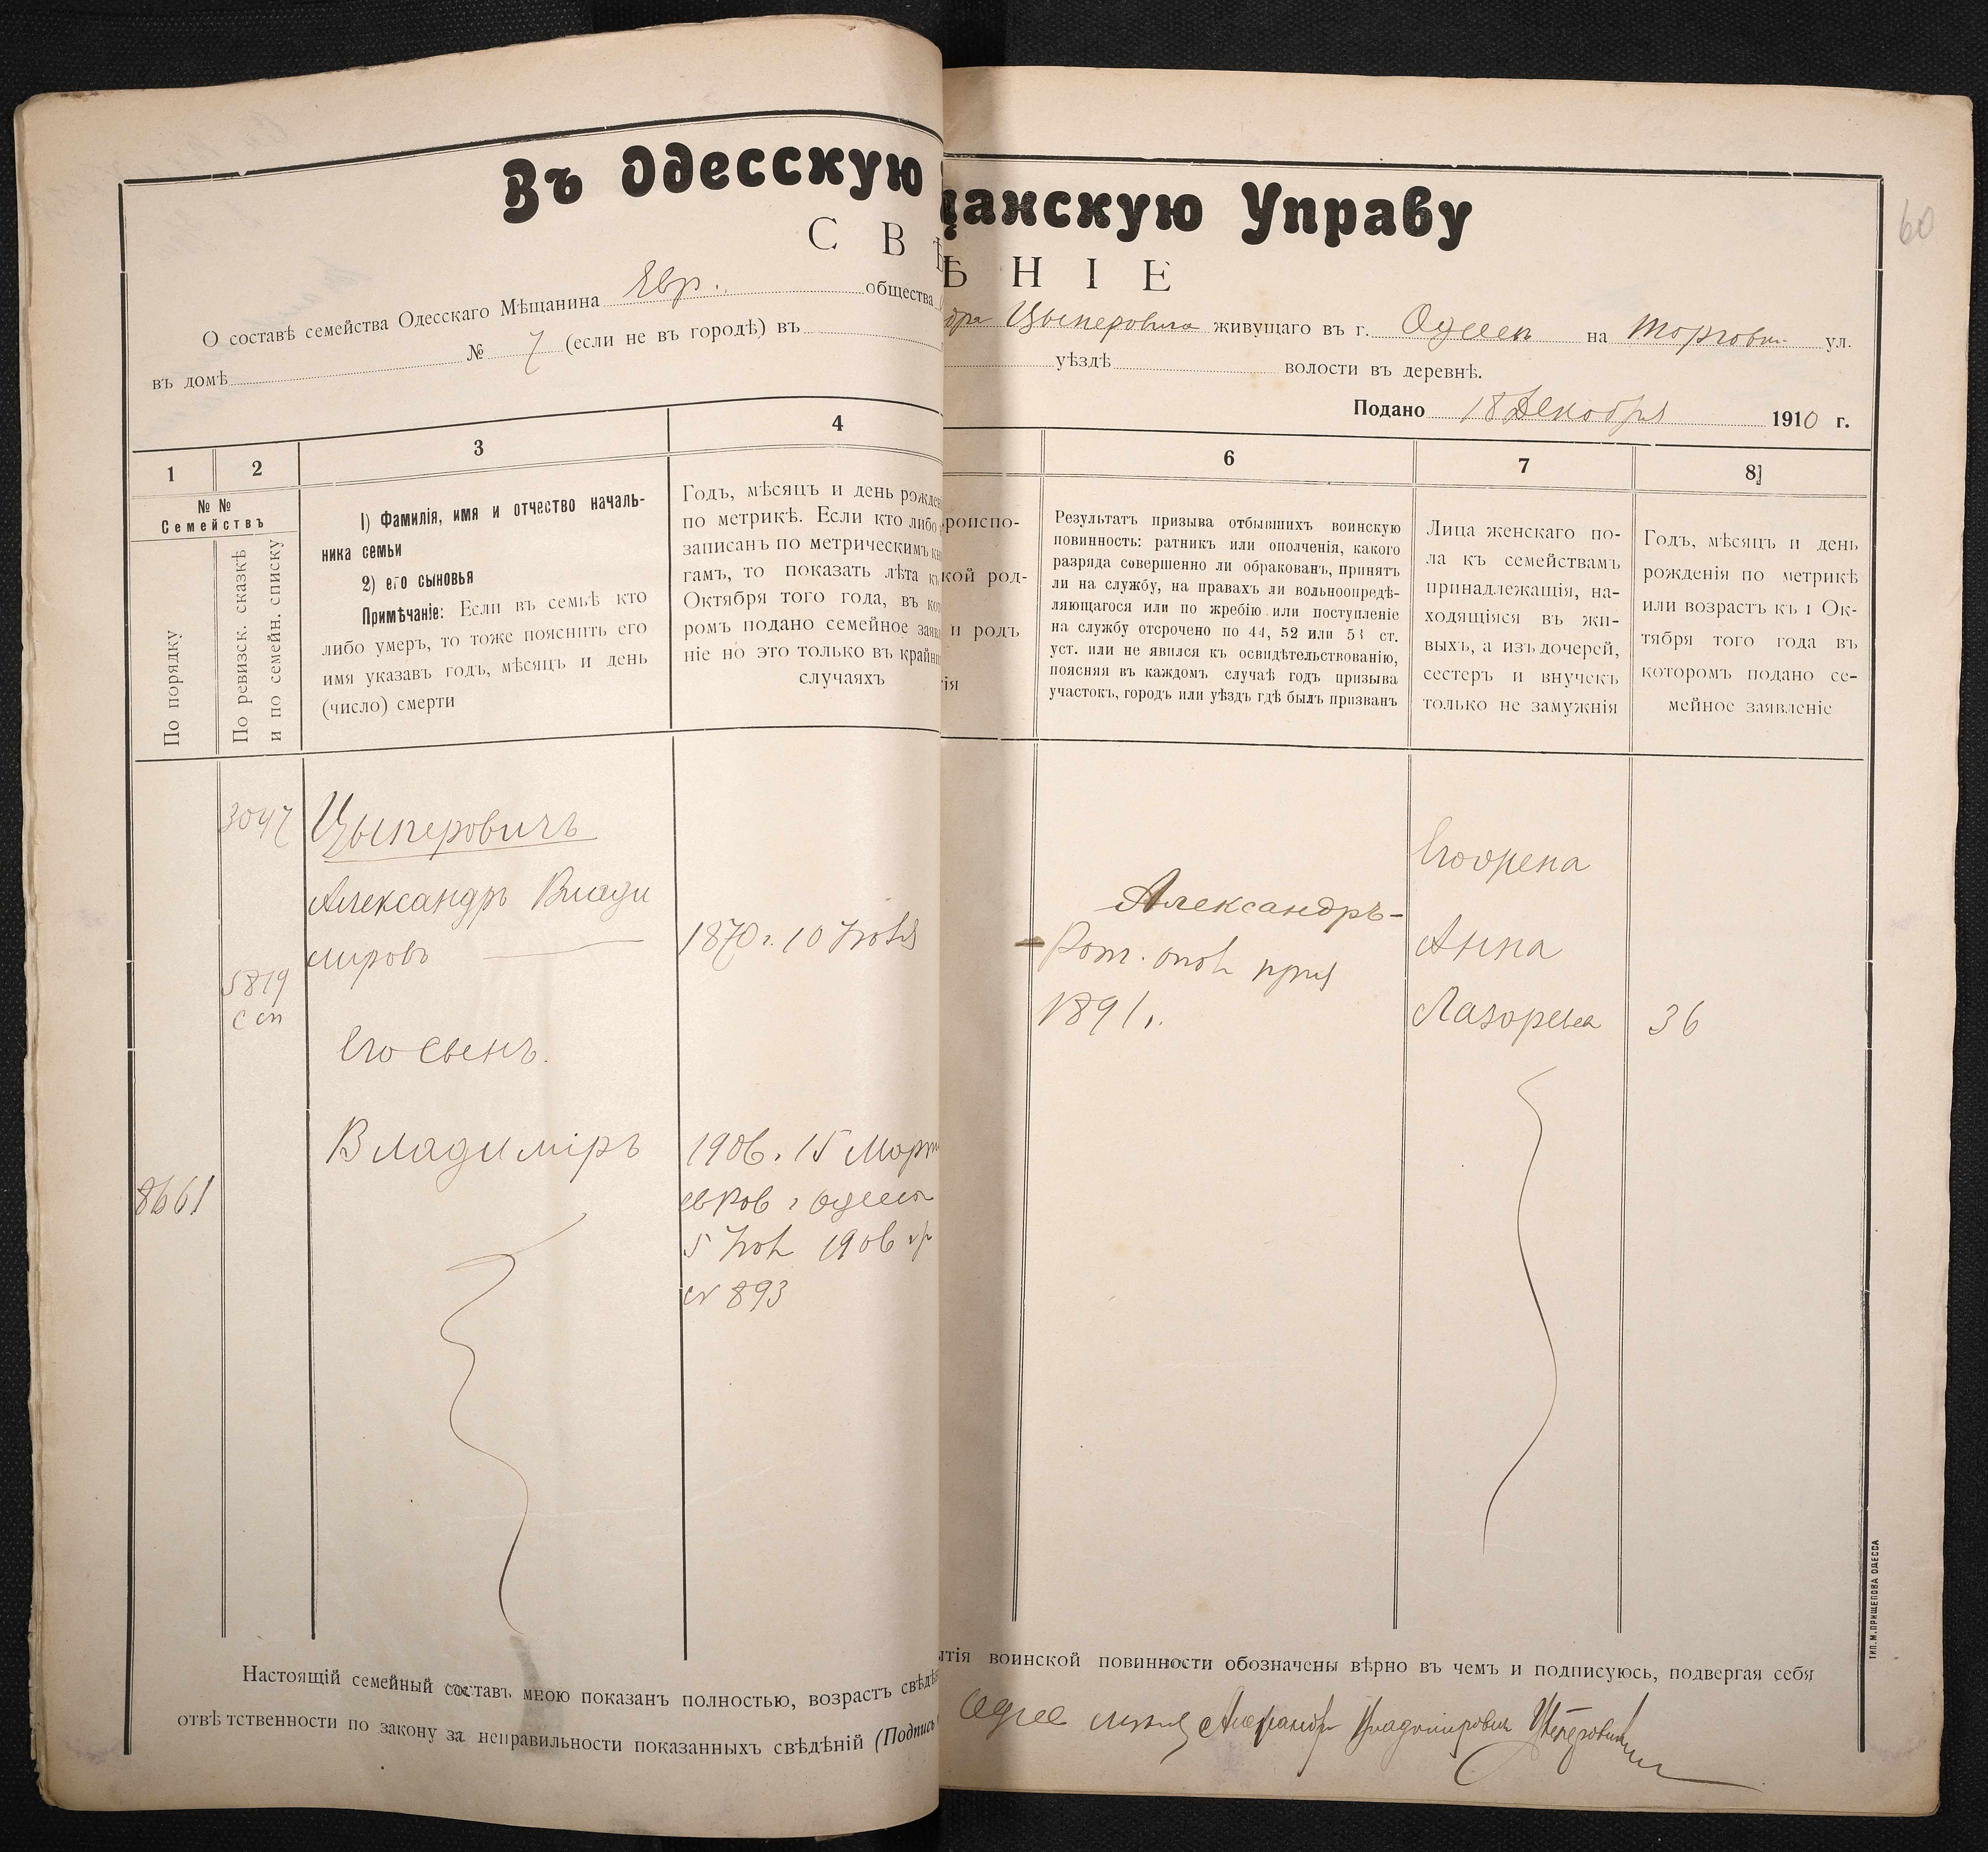 Въ Одесскую щанскую Управу
60
СВѢ ѢНІЕ
О составѣ семейства Одесскаго Мѣщанина Евр. общества
дра Цыперовича живущаго въ г. Одессѣ на Торгов. ул.
въ домѣ № 7 (если не въ городѣ) въ
уѣздѣ волости въ деревнѣ.
Подано 18 Декабря 1910 г.
1 2 3 4 6 7 8
№ №
Семействъ
По порядку
По ревизск. сказкѣ
и по семейн. списку
1) Фамилія, имя и отчество началь-
ника семьи
2) его сыновья
Примѣчаніе: Если въ семьѣ кто
либо умеръ, то тоже пояснить его
имя указавъ годъ, мѣсяцъ и день
(число) смерти
Годъ, мѣсяцъ и день рожден
по метрикѣ. Если кто либо
записанъ по метрическимъ кн
гамъ, то показать лѣта къ
Октября того года, въ кот
ромъ подано семейное заяв
ніе но это только въ крайни
случаяхъ
роиспо-
кой род-
и родъ
тія
Результатъ призыва отбывшихъ воинскую
повинность: ратникъ или ополченія, какого
разряда совершенно ли обракованъ, принятъ
ли на службу, на правахъ ли вольноопредѣ-
ляющагося или по жребію или поступленіе
на службу отсрочено по 44, 52 или 53 ст.
уст. или не явился къ освидѣтельствованію,
поясняя въ каждомъ случаѣ годъ призыва
участокъ, городъ или уѣздъ гдѣ былъ призванъ
Лица женскаго по-
ла къ семействамъ
принадлежащія, на-
ходящіяся въ жи-
выхъ, а изъ дочерей,
сестеръ и внучекъ
только не замужнія
Годъ, мѣсяцъ и день
рожденія по метрикѣ
или возрастъ къ 1 Ок-
тября того года въ
которомъ подано се-
мейное заявленіе
3047
Цыперовичъ
Александръ Влади
мировъ
1870 г. 10 Ноя
5819
с сп
Его сынъ.
Владиміръ
8661
1906. 15 Март
Одесс
5 Ноя 1906
№ 893
Александръ-
Рат. опол приз
1891.
Его жена
Анна
Лазорева
36
Настоящій семейный составъ мною показанъ полностью, возрастъ свѣдѣ
тія воинской повинности обозначены вѣрно въ чемъ и подписуюсь, подвергая себя
отвѣтственности по закону за неправильности показанныхъ свѣдѣній (Подпись
Одес мѣщ Александръ Владимировичъ Цыперовичъ
ТИП. М. ПРИЩЕПОВА ОДЕССА